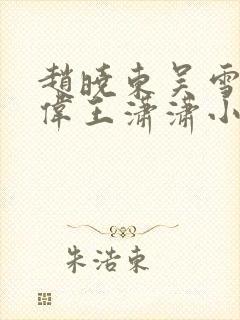 趙曉東吴雪
偉王潇潇小
朱浩東